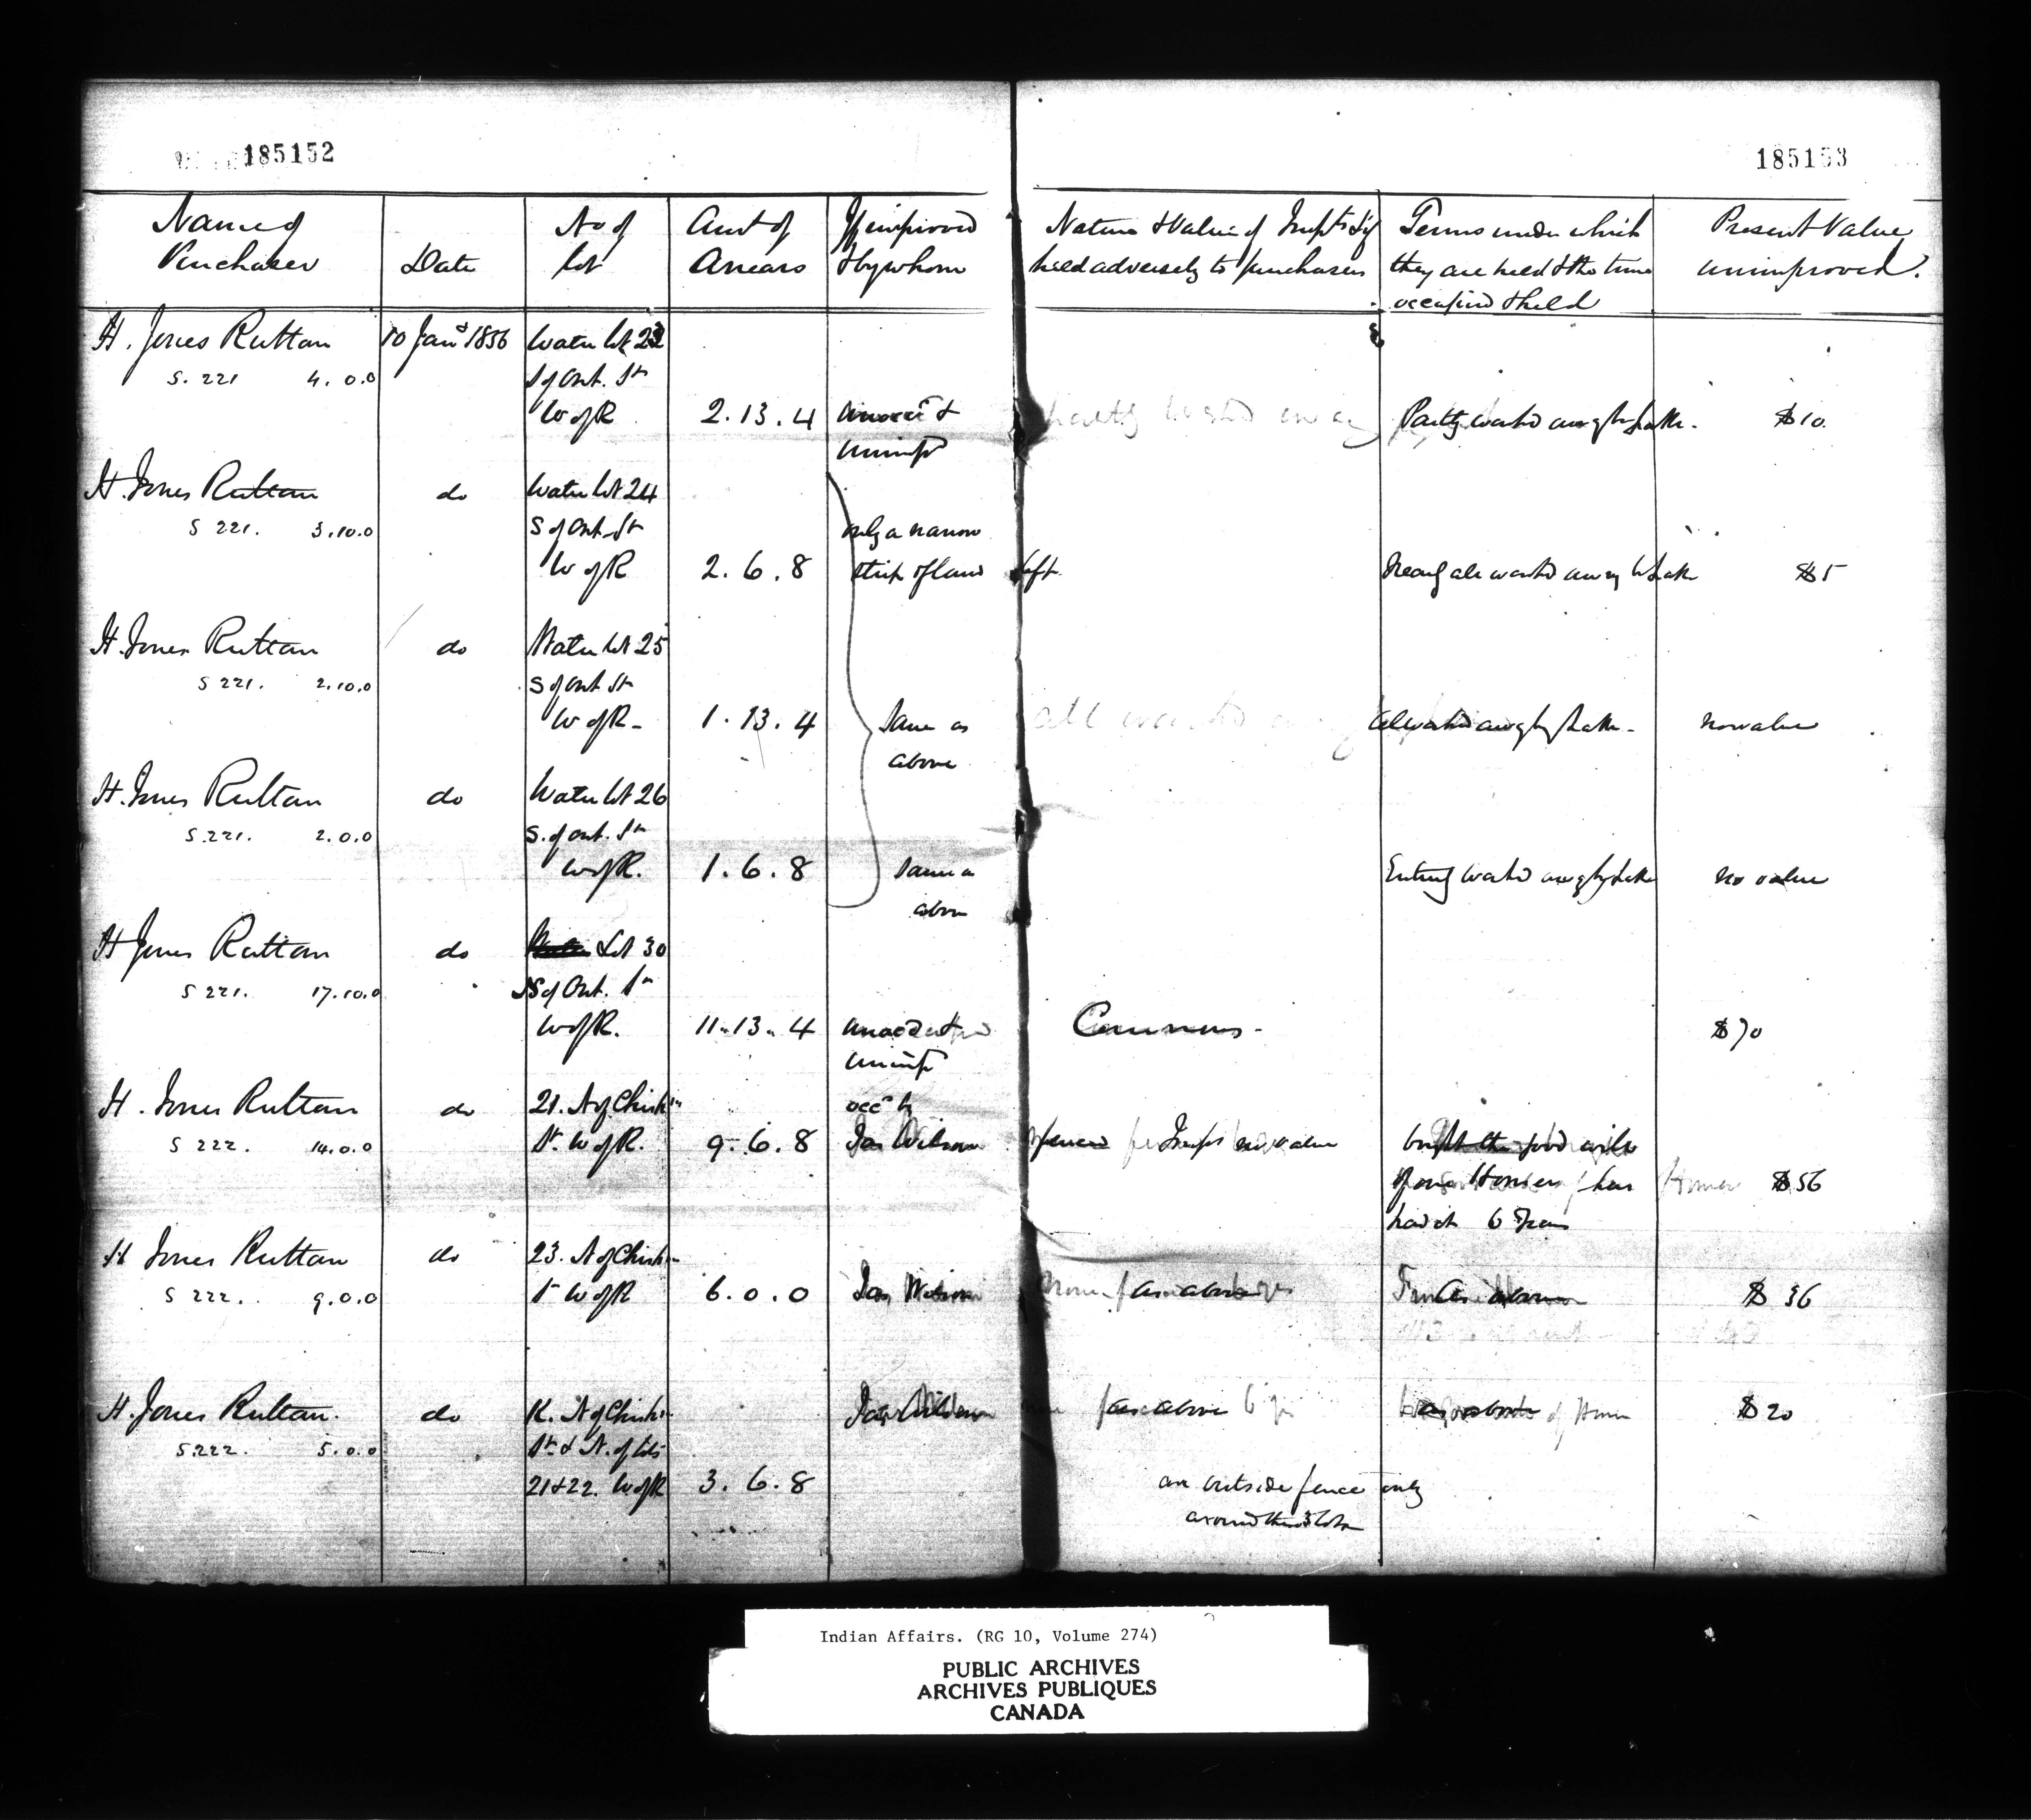 185152
185153
Name of Purchaser
Date
No of lot
Amt of Arrears
If improved & by whom
Nature & Value of Impts & if held adversely to purchasers
Terms under which they are held & the time occupied & held
Present Value unimproved.
H. Jones Ruttan 10 Jany 1856 Water lot 23
S. 221 4.0.0 S of Ont. St
W of R 2.13.4 unocc'd & Partly washed away by Lake. $10
unimpd
H. Jones Ruttan do Water lot 24
S 221. 3.10.0 S of Ont. St only a narrow
W of R 2.6.8 strip of land left. Nearly all washed away by Lake $5
H. Jones Ruttan do Water lot 25
S 221. 2.10.0 S of Ont St
W of R - 1.13.4 Same as All washed away by Lake - no value
above
H. Jones Ruttan do Water lot 26
S. 221. 2.0.0 S. of Ont. St
W of R. 1.6.8 Same as Entirely washed away by Lake no value
above
H Jones Ruttan do Lot 30
S 221. 17.10.0 S of Ont. St
W of R. 11.13.4 unocc'd & Commons - $70
unimpd
H. Jones Ruttan do 21. N of Christn occd by
S 222. 14.0.0 St. W of R. 9.6.8 Jas Wilson fenced Impts no value bought the good will
of one Homer, has $56
had it 6 Years
H Jones Ruttan do 23. N of Christn
S 222. 9.0.0 St W of R 6.0.0 Jas Wilson as above As above $36
H. Jones Ruttan. do K. N of Christn Jas Wilson as above as above $20
S.222. 5.0.0 St & N. of lots
21 & 22. W of R 3.6.8 an outside fence only
around these 3 lots
Indian Affairs. (RG 10, Volume 274)
PUBLIC ARCHIVES
ARCHIVES PUBLIQUES
CANADA